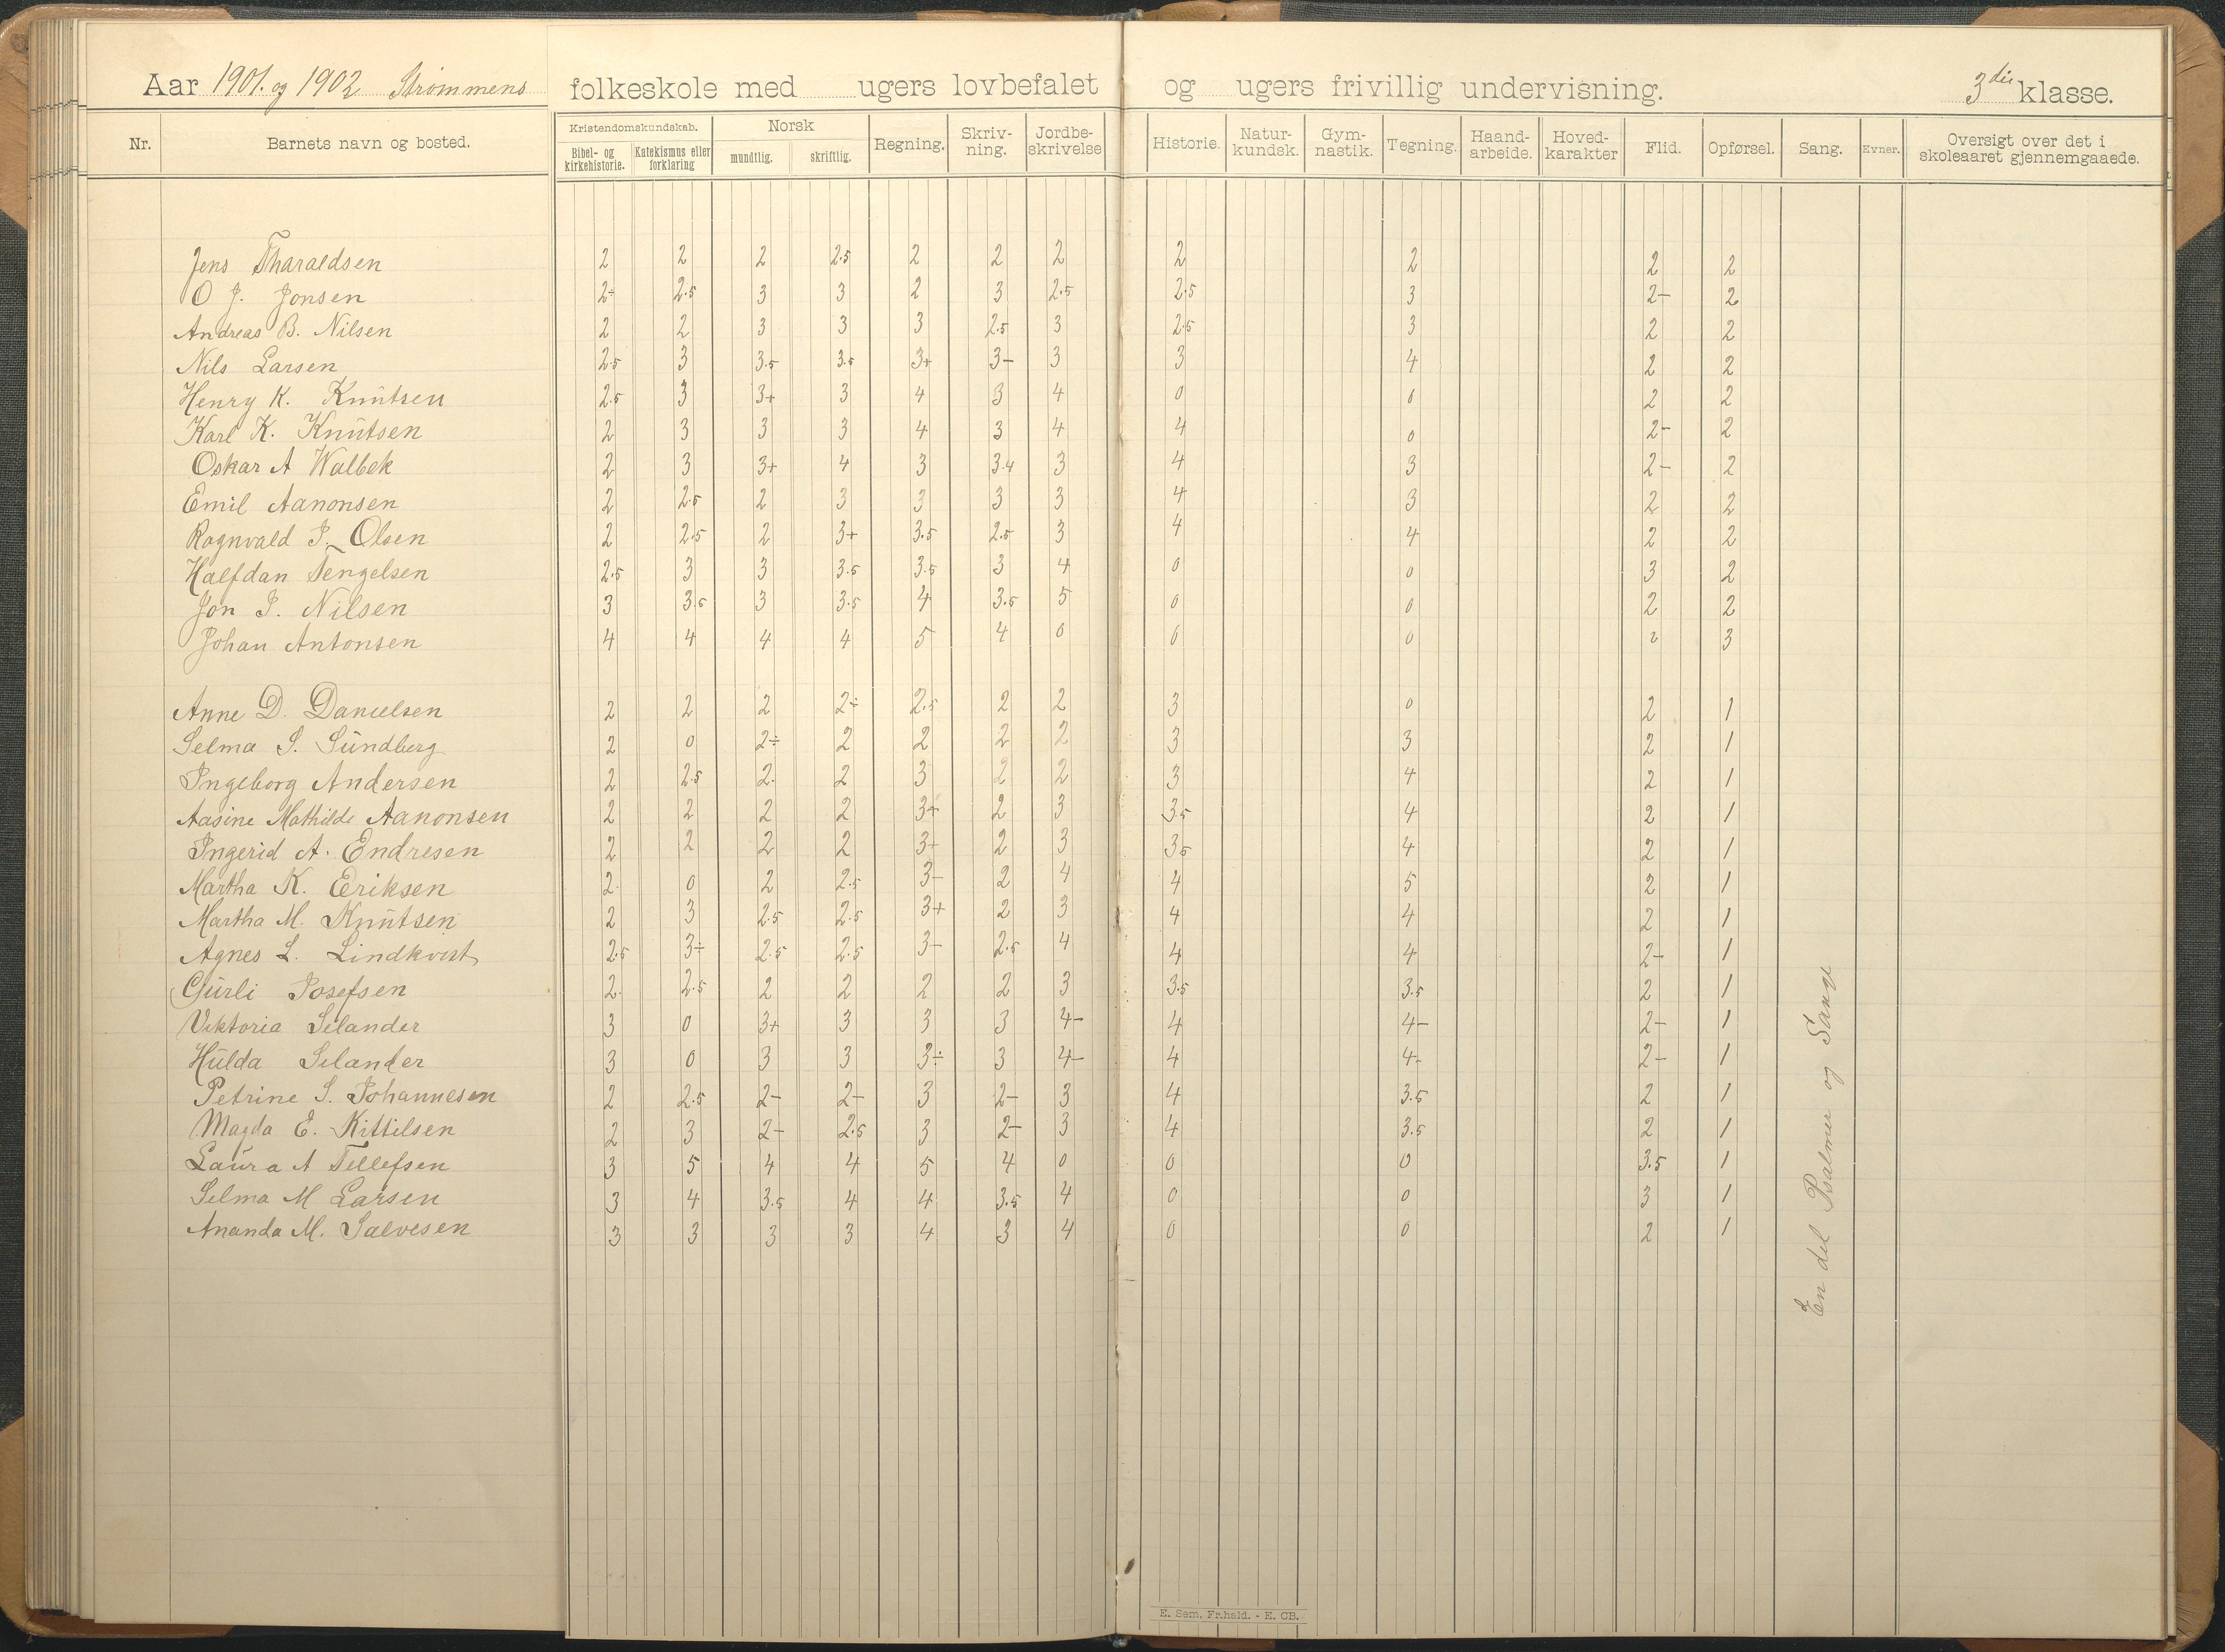 Aar 1901. og 1902 Strömmens folkeskole med ugers lovbefalet og ugers frivillig undervisning. 3die klasse.
Nr. Barnets navn og bosted. Kristendomskundskab. Bibel- og kirkehistorie. Katekismus eller forklaring Norsk mundtlig. skriftlig. Regning. Skriv-ning. Jordbe-skrivelse Historie. Natur-kundsk. Gym-nastik. Tegning. Haand-arbeide. Hoved-karakter Flid. Opførsel. Sang. Evner. Oversigt over det i skoleaaret gjennemgaaede.
Jens Tharaldsen 2 2 2 2.5 2 2 2 2 2 2 2
O J. Jonsen 2÷ 2.5 3 3 2 3 2.5 2.5 3 2- 2
Andreas B. Nilsen 2 2 3 3 3 2.5 3 2.5 3 2 2
Nils Larsen 2.5 3 3.5 3.5 3+ 3- 3 3 4 2 2
Henry K. Knütsen 2.5 3 3+ 3 4 3 4 0 0 2 2
Karl K. Knütsen 2 3 3 3 4 3 4 4 0 2- 2
Oskar A Walbek 2 3 3+ 4 3 3.4 3 4 3 2- 2
Emil Aanonsen 2 2.5 2 3 3 3 3 4 3 2 2
Ragnvald J. Olsen 2 2.5 2 3+ 3.5 2.5 3 4 4 2 2
Halfdan Tengelsen 2.5 3 3 3.5 3.5 3 4 0 0 3 2
Jon J. Nilsen 3 3.5 3 3.5 4 3.5 5 0 0 2 2
Johan Antonsen 4 4 4 4 5 4 0 0 0 2 3
Anne D. Danielsen 2 2 2 2÷ 2.5 2 2 3 0 2 1
Selma S. Sündberg 2 0 2÷ 2 2 2 2 3 3 2 1
Ingeborg Andersen 2 2.5 2. 2 3 2 2 3 4 2 1
Aasine Mathilde Aanonsen 2 2 2 2 3+ 2 3 3.5 4 2 1
Ingerid A. Endresen 2 2 2 2 3+ 2 3 3.5 4 2 1
Martha K. Eriksen 2. 0 2 2.5 3- 2 4 4 5 2 1
Martha M. Knütsen 2 3 2.5 2.5 3+ 2 3 4 4 2 1
Agnes L. Lindkvist 2.5 3÷ 2.5 2.5 3- 2.5 4 4 4 2- 1
Gürli Josefsen 2. 2.5 2 2 2 2 3 3.5 3.5 2 1
Viktoria Selander 3 0 3+ 3 3 3 4- 4 4- 2- 1
Hülda Selander 3 0 3 3 3÷ 3 4- 4 4- 2- 1
Petrine S. Johannesen 2 2.5 2- 2- 3 2- 3 4 3.5 2 1
Magda E. Kittilsen 2 3 2- 2.5 3 2- 3 4 3.5 2 1
Laüra A Tellefsen 3 5 4 4 5 4 0 0 0 3.5 1
Selma M Larsen 3 4 3.5 4 4 3.5 4 0 0 3 1
Ananda M. Salvesen 3 3 3 3 4 3 4 0 0 2 1
En del Psalmer og Sange
E. Sem, Fr.hald. - E. CB.